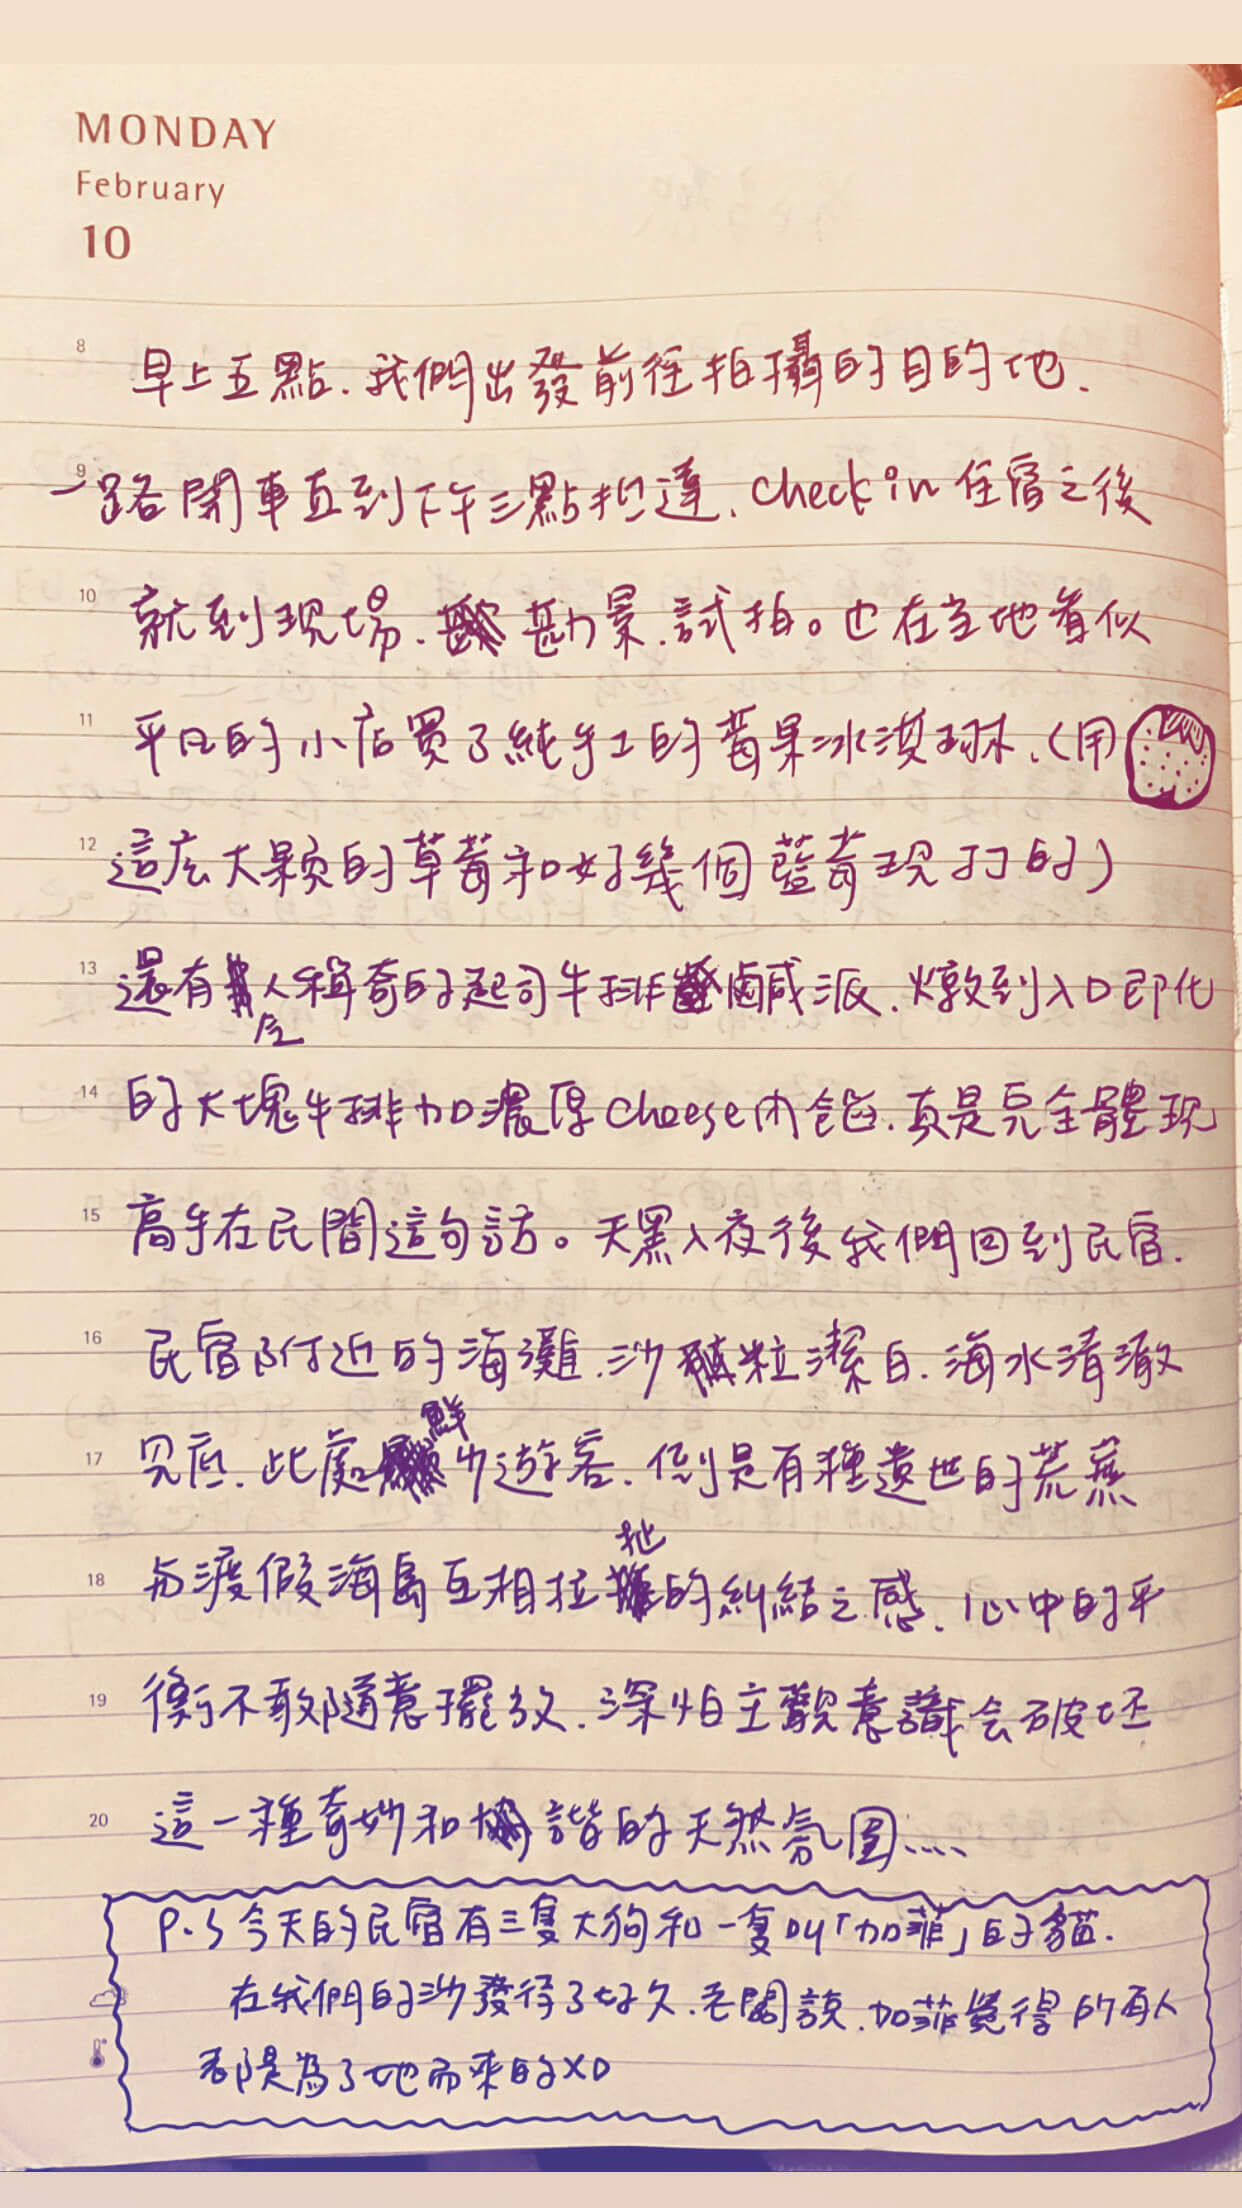 MONDAY
February
10
8 早上五點,我們出發前往拍攝的目的地,
9 一路開車直到下午三點抵達,check in 住宿之後
10 就到現場,勘景,試拍。也在當地看似
11 平凡的小店買了純手工的莓果冰淇琳,(用
12 這広大顆的草莓和好幾個藍莓現打的)
13 還有令人稱奇的起司牛排鹹派,燉到入口即化
14 的大塊牛排加濃厚cheese內餡,真是完全體現
15 高手在民間這句話。天黑入夜後我們回到民宿,
16 民宿附近的海灘,沙粒潔白,海水清澈
17 見底,此處鮮少遊客,倒是有種遺世的荒蕪
18 与渡假海島互相拉扯的糾結之感,心中的平
19 衡不敢隨意擺放,深怕主觀意識会破坏
20 這一種奇妙和諧的天然氛圍....
P.S 今天的民宿有三隻大狗和一隻叫「加菲」的貓,
在我們的沙發待了好久,老闆說,加菲覺得所有人
都是為了牠而來的XD